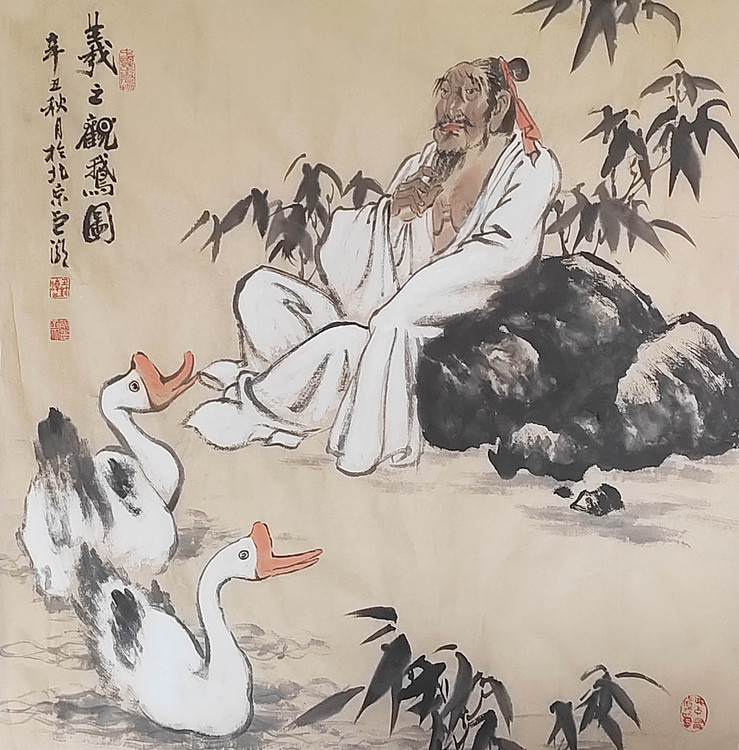 羲之觀鵝圖
辛丑秋月於北京